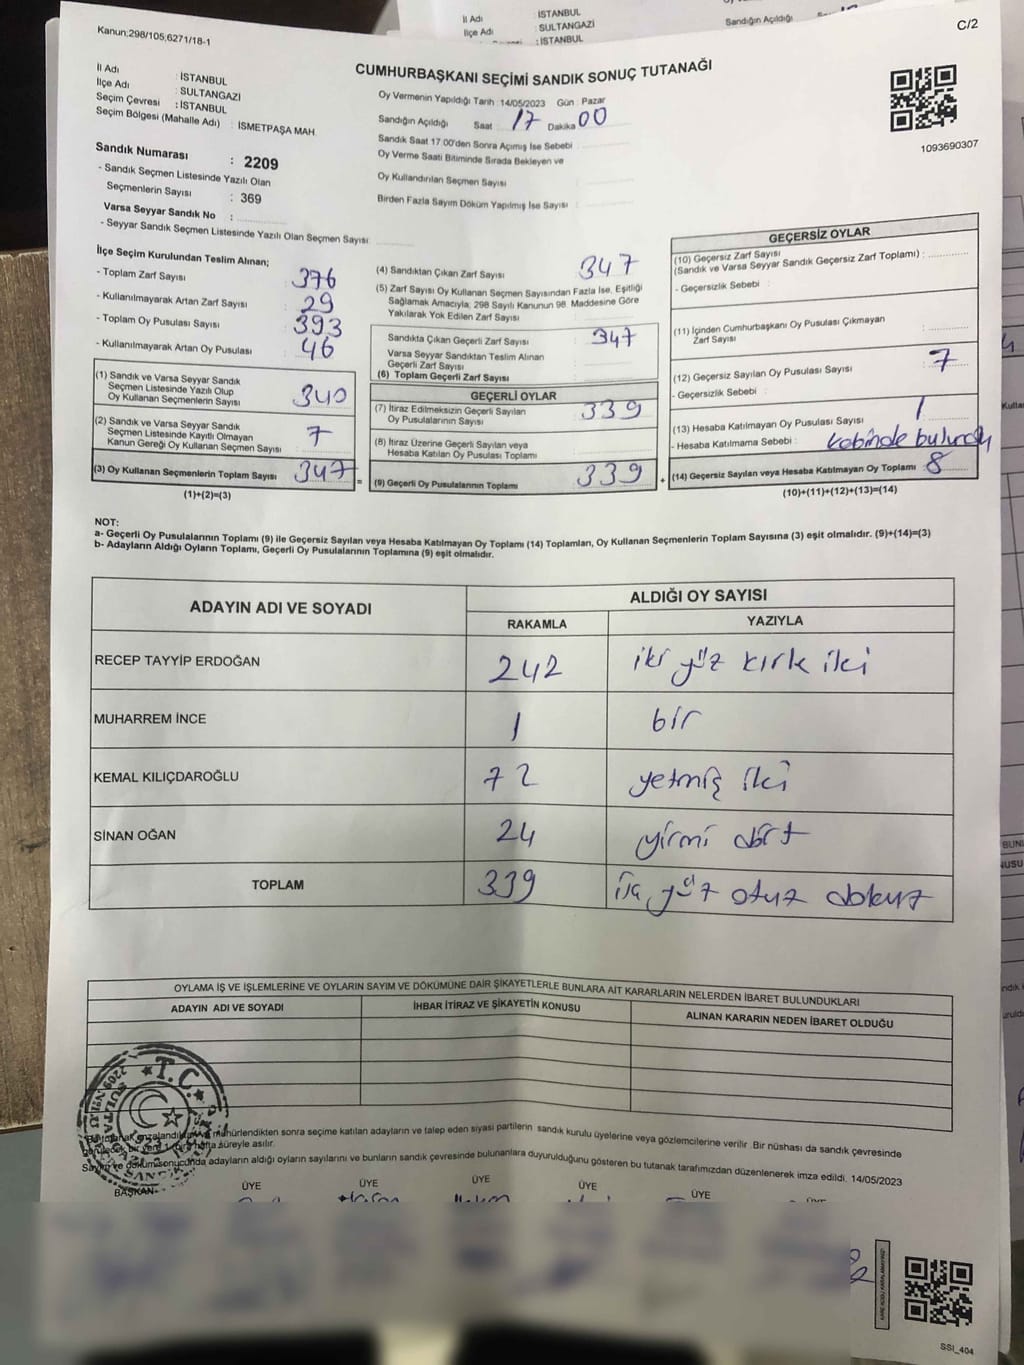 İl Adı : İSTANBUL
İlçe Adı : SULTANGAZİ
: İSTANBUL
Sandığın Açıldığı
Kanun;298/105;6271/18-1
C/2
CUMHURBAŞKANI SEÇİMİ SANDIK SONUÇ TUTANAĞI
1093690307
İl Adı : İSTANBUL
İlçe Adı : SULTANGAZİ
Seçim Çevresi : İSTANBUL
Seçim Bölgesi (Mahalle Adı) : İSMETPAŞA MAH.
Sandık Numarası : 2209
- Sandık Seçmen Listesinde Yazılı Olan
Seçmenlerin Sayısı : 369
Varsa Seyyar Sandık No :
- Seyyar Sandık Seçmen Listesinde Yazılı Olan Seçmen Sayısı
Oy Vermenin Yapıldığı Tarih :14/05/2023 Gün : Pazar
Sandığın Açıldığı Saat 17 Dakika 00
Sandık Saat 17.00'den Sonra Açımış İse Sebebi :
Oy Verme Saati Bitiminde Sırada Bekleyen ve
Oy Kullandırılan Seçmen Sayısı
Birden Fazla Sayım Döküm Yapılmış İse Sayısı :
İlçe Seçim Kurulundan Teslim Alınan;
- Toplam Zarf Sayısı : 376
- Kullanılmayarak Artan Zarf Sayısı : 29
- Toplam Oy Pusulası Sayısı : 393
- Kullanılmayarak Artan Oy Pusulası : 46
(1) Sandık ve Varsa Seyyar Sandık
Seçmen Listesinde Yazılı Olup
Oy Kullanan Seçmenlerin Sayısı 340
(2) Sandık ve Varsa Seyyar Sandık
Seçmen Listesinde Kayıtlı Olmayan
Kanun Gereği Oy Kullanan Seçmen Sayısı 7
(3) Oy Kullanan Seçmenlerin Toplam Sayısı 347
(1)+(2)=(3)
(4) Sandıktan Çıkan Zarf Sayısı 347
(5) Zarf Sayısı Oy Kullanan Seçmen Sayısından Fazla İse, Eşitliği
Sağlamak Amacıyla; 298 Sayılı Kanunun 98. Maddesine Göre
Yakılarak Yok Edilen Zarf Sayısı
Sandıkta Çıkan Geçerli Zarf Sayısı 347
Varsa Seyyar Sandıktan Teslim Alınan
Geçerli Zarf Sayısı
(6) Toplam Geçerli Zarf Sayısı
GEÇERLİ OYLAR
(7) İtiraz Edilmeksizin Geçerli Sayılan
Oy Pusulalarının Sayısı 339
(8) İtiraz Üzerine Geçerli Sayılan veya
Hesaba Katılan Oy Pusulası Toplamı
(9) Geçerli Oy Pusulalarının Toplamı 339
GEÇERSİZ OYLAR
(10) Geçersiz Zarf Sayısı
(Sandık ve Varsa Seyyar Sandık Geçersiz Zarf Toplamı) :
- Geçersizlik Sebebi :
(11) İçinden Cumhurbaşkanı Oy Pusulası Çıkmayan
Zarf Sayısı
(12) Geçersiz Sayılan Oy Pusulası Sayısı 7
- Geçersizlik Sebebi :
(13) Hesaba Katılmayan Oy Pusulası Sayısı 1
- Hesaba Katılmama Sebebi : kabinde bulundu
(14) Geçersiz Sayılan veya Hesaba Katılmayan Oy Toplamı 8
(10)+(11)+(12)+(13)=(14)
NOT:
a- Geçerli Oy Pusulalarının Toplamı (9) ile Geçersiz Sayılan veya Hesaba Katılmayan Oy Toplamı (14) Toplamları, Oy Kullanan Seçmenlerin Toplam Sayısına (3) eşit olmalıdır. (9)+(14)=(3)
b- Adayların Aldığı Oyların Toplamı, Geçerli Oy Pusulalarının Toplamına (9) eşit olmalıdır.
ADAYIN ADI VE SOYADI
ALDIĞI OY SAYISI
RAKAMLA YAZIYLA
RECEP TAYYİP ERDOĞAN 242 iki yüz kırk iki
MUHARREM İNCE 1 bir
KEMAL KILIÇDAROĞLU 72 yetmiş iki
SİNAN OĞAN 24 yirmi dört
TOPLAM 339 yüz otuz dokuz
OYLAMA İŞ VE İŞLEMLERİNE VE OYLARIN SAYIM VE DÖKÜMÜNE DAİR ŞİKAYETLERLE BUNLARA AİT KARARLARIN NELERDEN İBARET BULUNDUKLARI
ADAYIN ADI VE SOYADI İHBAR İTİRAZ VE ŞİKAYETİN KONUSU ALINAN KARARIN NEDEN İBARET OLDUĞU
T.C.
mühürlendikten sonra seçime katılan adayların ve talep eden siyasi partilerin sandık kurulu üyelerine veya gözlemcilerine verilir. Bir nüshası da sandık çevresinde
hafta süreyle asılır.
Sayım ve dökümü sonucunda adayların aldığı oyların sayılarını ve bunların sandık çevresinde bulunanlara duyurulduğunu gösteren bu tutanak tarafımızdan düzenlenerek imza edildi. 14/05/2023
BAŞKAN ÜYE ÜYE ÜYE ÜYE ÜYE ÜYE
SSI_404